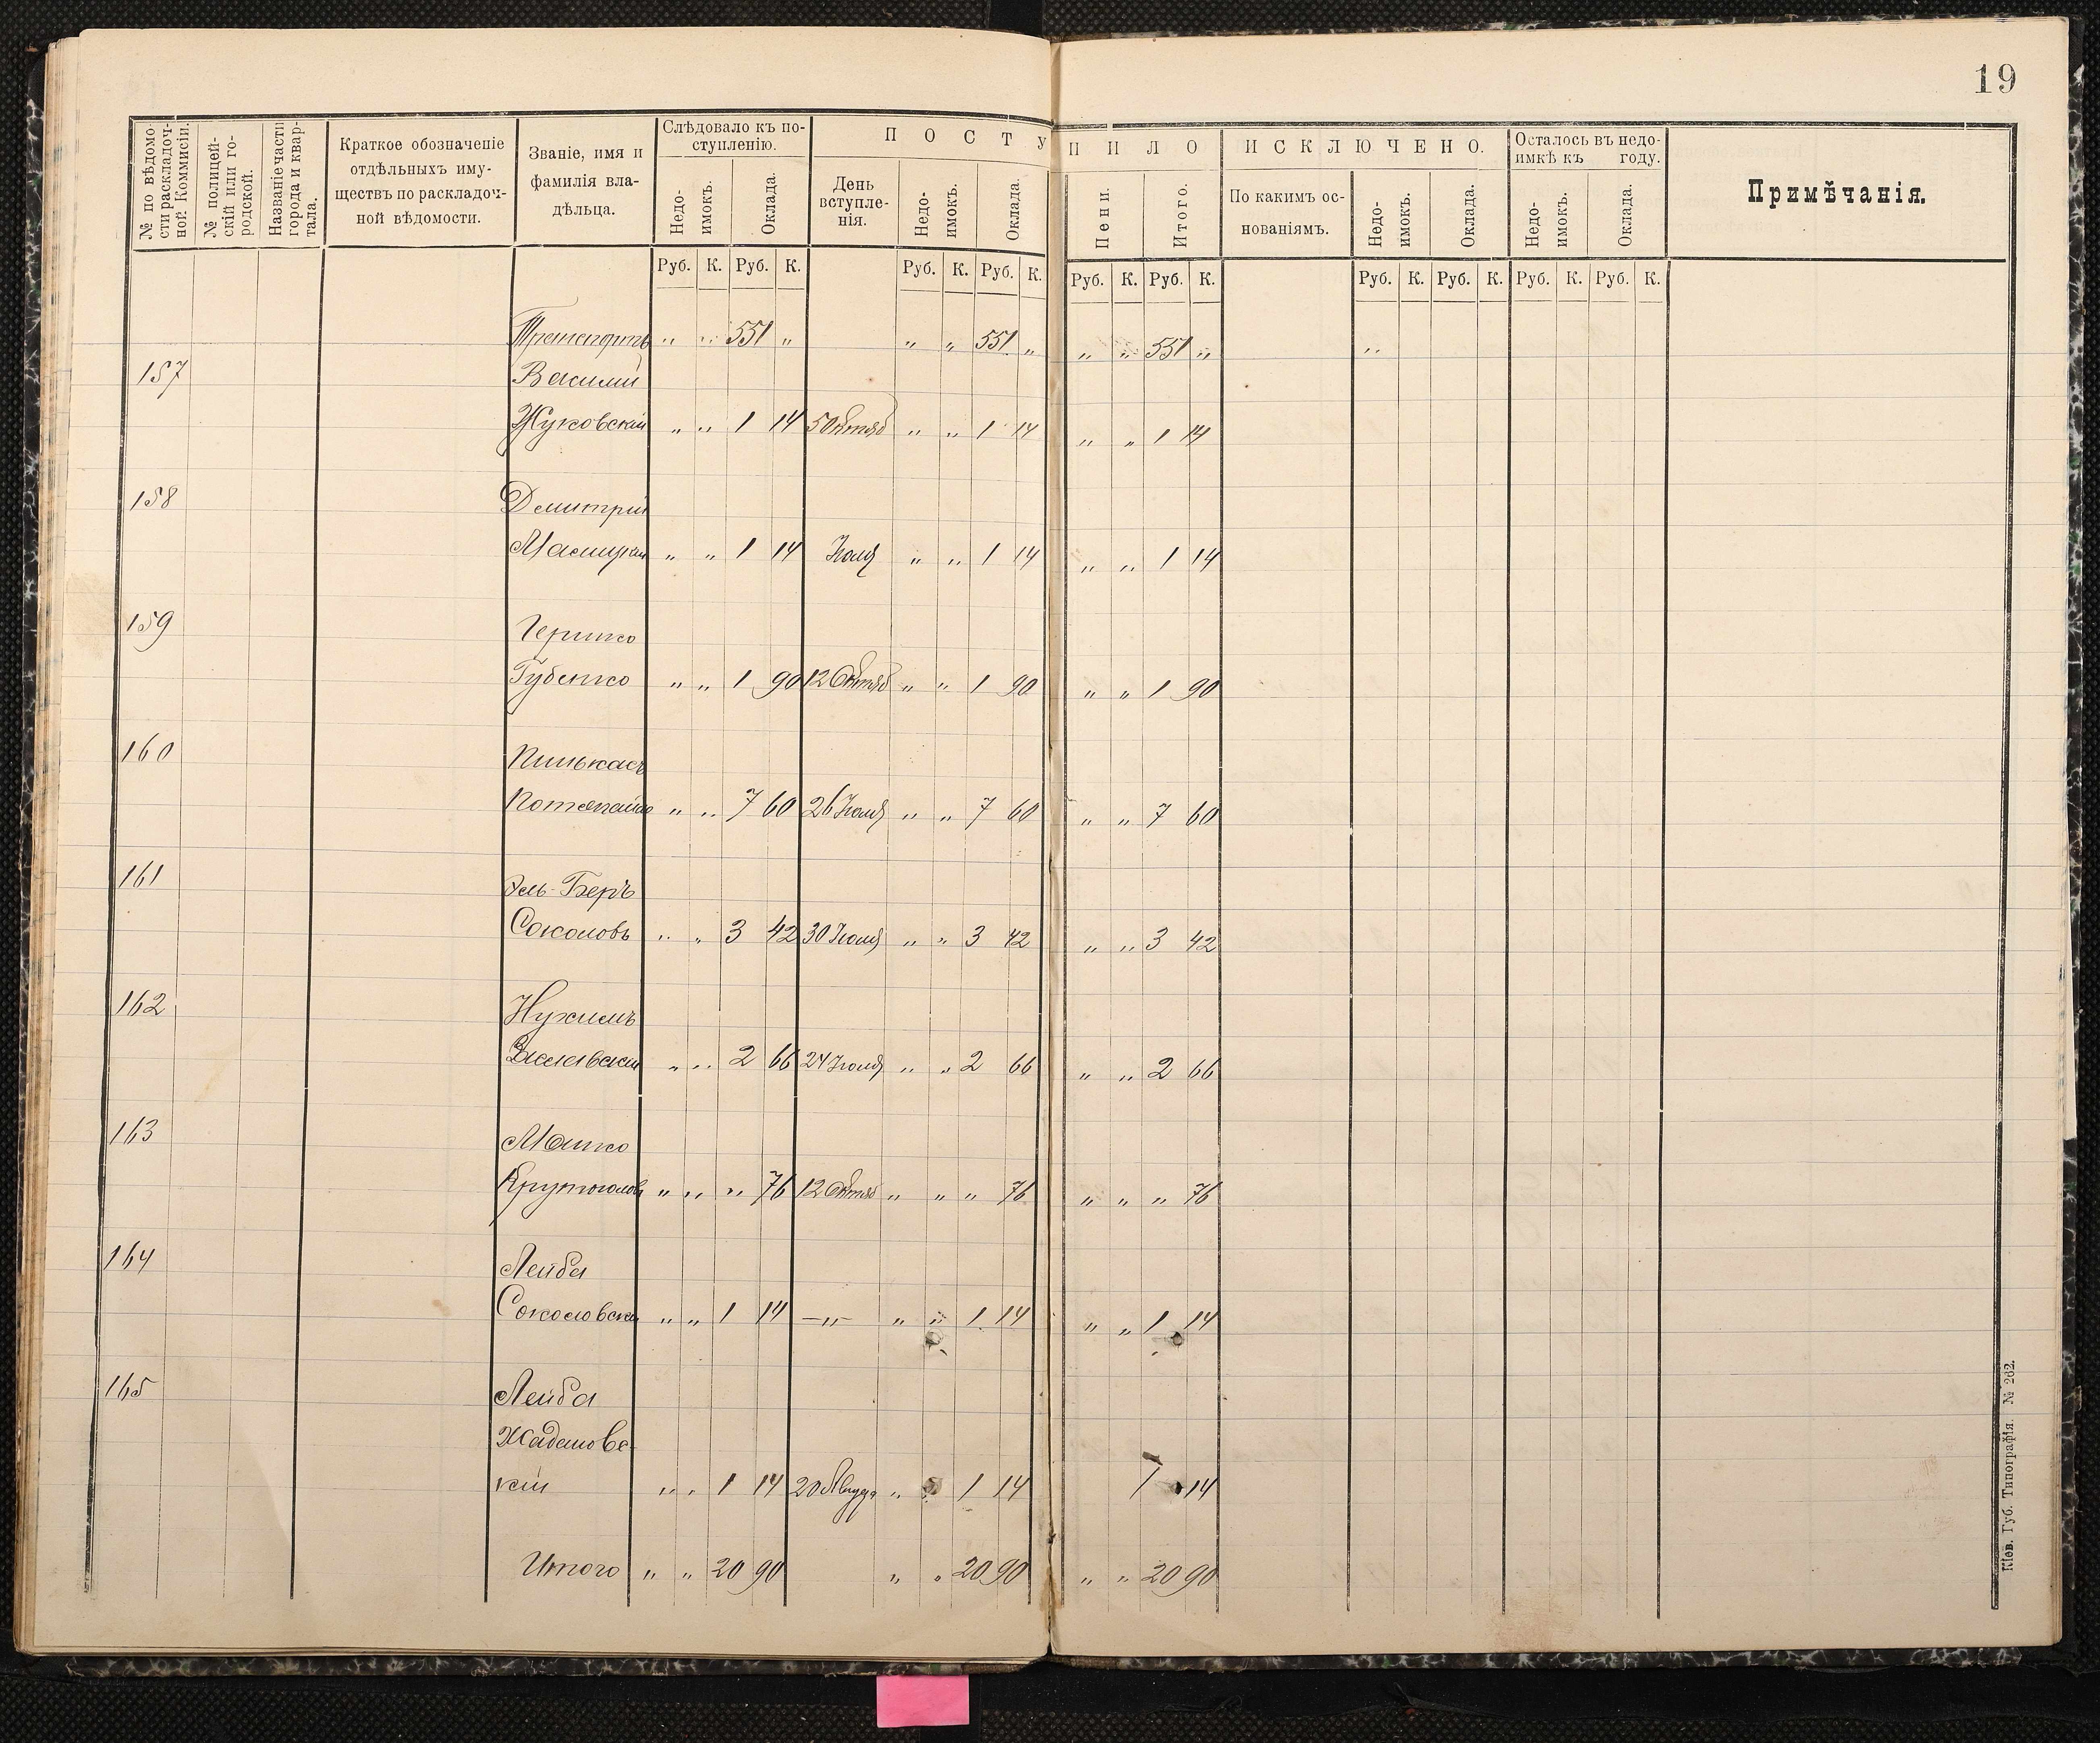 19
№ по вѣдомо-
сти раскладоч-
ной Коммисіи.
№ полицей-
скій или го-
родской.
Названіе части
города и квар-
тала.
Краткое обозначеніе
отдѣльныхъ иму-
ществъ по раскладоч-
ной вѣдомости.
Званіе, имя и
фамилія вла-
дѣльца.
Слѣдовало къ по-
ступленію.
Недо-
имокъ.
Оклада.
П О С Т У П И Л О
День
вступле-
нія.
Недо-
имокъ.
Оклада.
Пени.
Итого.
И С К Л Ю Ч Е Н О.
По какимъ ос-
нованіямъ.
Недо-
имокъ.
Оклада.
Осталось въ недо-
имкѣ къ году.
Недо-
имокъ.
Оклада.
Примѣчанія.
Руб. К. Руб. К. Руб. К. Руб. К. Руб. К. Руб. К. Руб. К. Руб. К. Руб. К. Руб. К.
Транспортъ „ „ 551 „ „ „ 551 „ „ „ 551 „ „
157 Василий
Жуковский „ „ 1 14 5 Октяб „ „ 1 14 „ „ 1 14
158 Дмитрий
„ „ 1 14 Июля „ „ 1 14 „ „ 1 14
159 Гершко
Губенко „ „ 1 90 12 Октяб „ „ 1 90 „ „ 1 90
160 Пинькасъ
„ „ 7 60 26 Июля „ „ 7 60 „ „ 7 60
161 Эль-Беръ
Соколовъ „ „ 3 42 30 Июля „ „ 3 42 „ „ 3 42
162 Нухимъ
„ „ 2 66 24 Июля „ „ 2 66 „ „ 2 66
163 Мошко
„ „ „ 76 12 Октяб „ „ „ 76 „ „ „ 76
164 Лейба
Соколовски „ „ 1 14 —„— „ „ 1 14 „ „ 1 14
165 Лейба
Жадановс-
кій „ „ 1 14 20 Авгус „ „ 1 14 1 14
Итого „ „ 20 90 „ „ 20 90 „ „ 20 90
Кіев. Губ. Типографія. № 262.